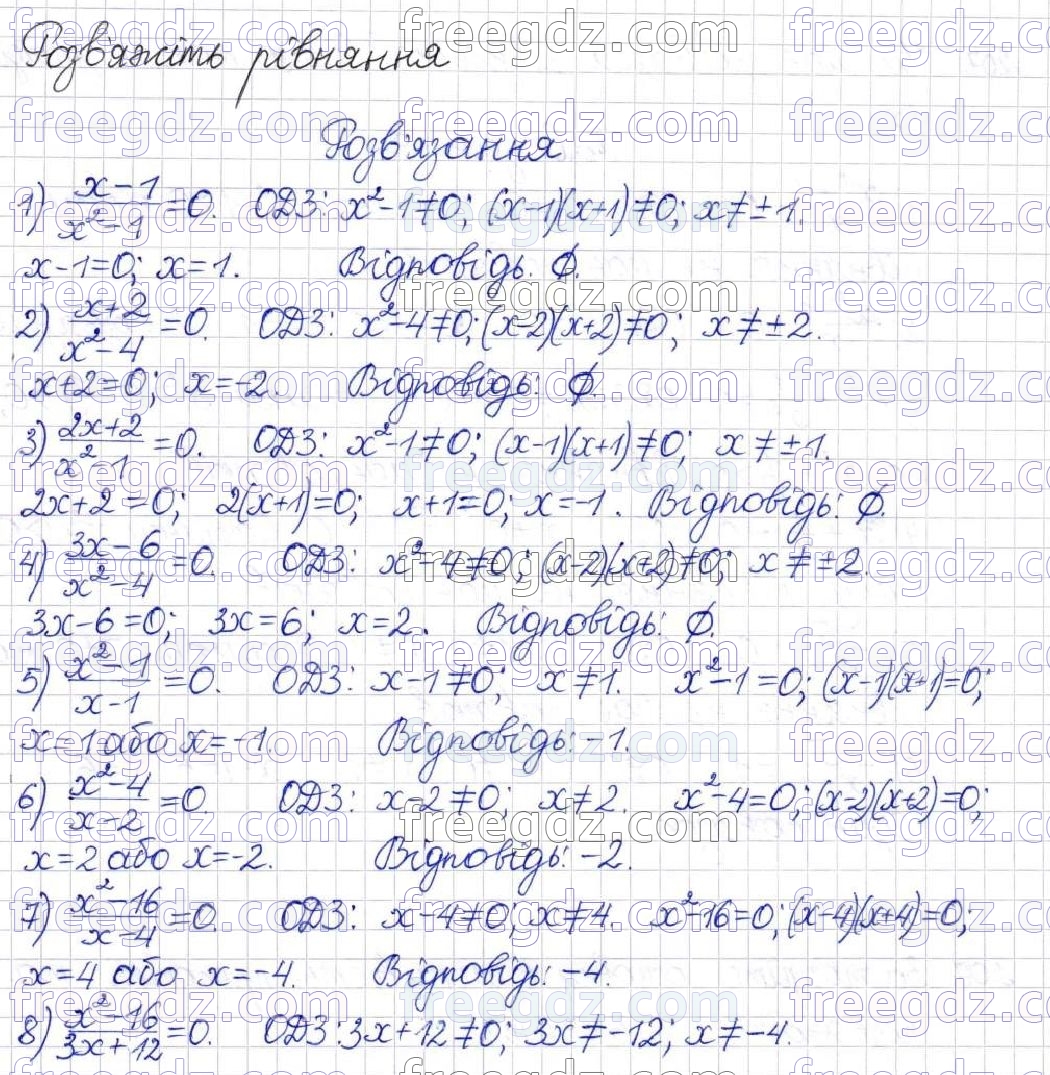 Розв'яжіть рівняння
Розв'язання
1) (x-1)/(x²-1)=0. ОДЗ: x²-1≠0; (x-1)(x+1)≠0; x≠±1.
x-1=0; x=1. Відповідь. ∅.
2) (x+2)/(x²-4)=0. ОДЗ: x²-4≠0; (x-2)(x+2)≠0; x≠±2.
x+2=0; x=-2. Відповідь: ∅.
3) (2x+2)/(x²-1)=0. ОДЗ: x²-1≠0; (x-1)(x+1)≠0; x≠±1.
2x+2=0; 2(x+1)=0; x+1=0; x=-1. Відповідь: ∅.
4) (3x-6)/(x²-4)=0. ОДЗ: x²-4≠0; (x-2)(x+2)≠0; x≠±2.
3x-6=0; 3x=6; x=2. Відповідь: ∅.
5) (x²-1)/(x-1)=0. ОДЗ: x-1≠0; x≠1. x²-1=0; (x-1)(x+1)=0;
x=1 або x=-1. Відповідь: -1.
6) (x²-4)/(x-2)=0. ОДЗ: x-2≠0; x≠2. x²-4=0; (x-2)(x+2)=0;
x=2 або x=-2. Відповідь: -2.
7) (x²-16)/(x-4)=0. ОДЗ: x-4≠0; x≠4. x²-16=0; (x-4)(x+4)=0;
x=4 або x=-4. Відповідь: -4.
8) (x²-16)/(3x+12)=0. ОДЗ: 3x+12≠0; 3x≠-12; x≠-4.
freegdz.com